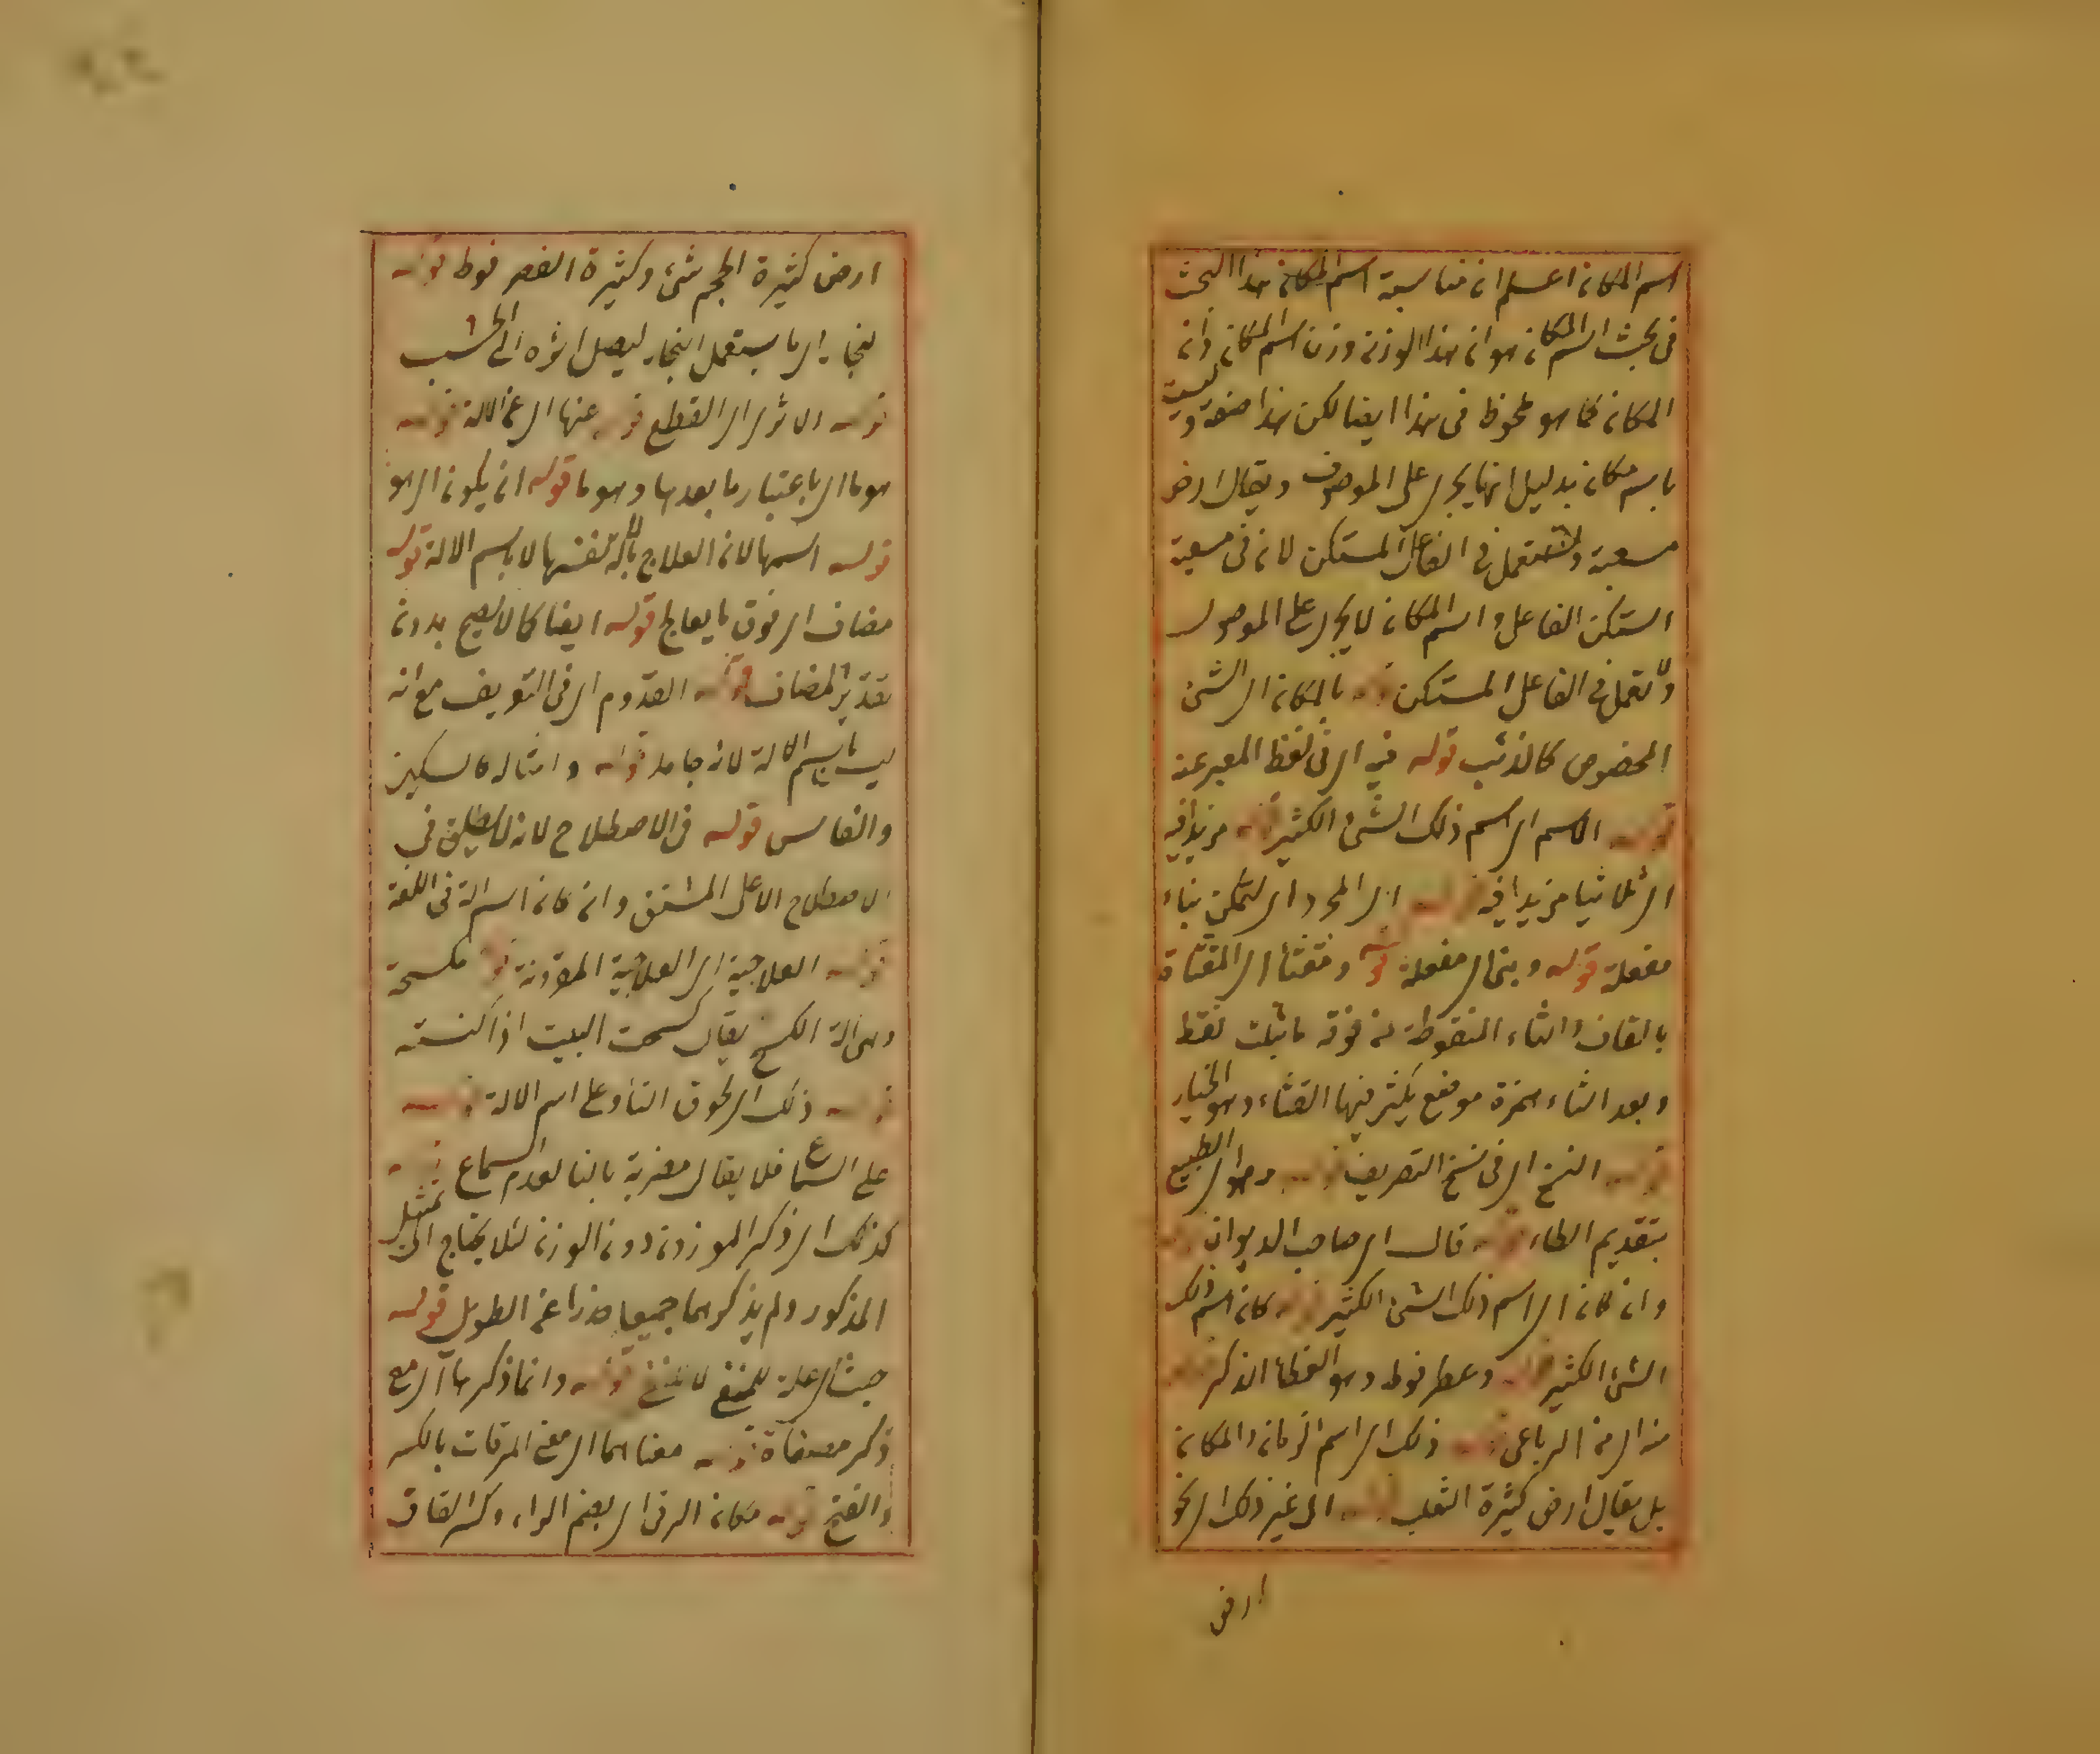 اسم المكان اعلم ان مناسبة اسم المكان هذا البحث
فى بحث اسم المكان هو ان هذا الوزن وزن اسم المكان وان
المكان كما هو ملحوظ فى هذا ايضا لكن هذا صفة وليست
باسم مكان بدليل انها يجرى على الموصوف ويقال ارض
مسبعة ولا تستعمل فى الفاعل المستكن لان فى مسبعة
استكن الفاعل واسم المكان لا يجرى على الموصول
ولا يعمل فى الفاعل المستكن قوله بالمكان اى الشئ
المخصوص كالذئب قوله فيه اى فى لفظ المعبر عنه
قوله الاسم اى اسم ذلك الشئ الكثير قوله مزيدا فيه
اى ثلاثيا مزيدا فيه قوله الى المجرد اى ليمكن بناء
مفعلة قوله وبنى اى مفعلة قوله ومقثأ اى المقثاة
بالقاف والثاء المنقوطة من فوقه بثلث نقط
وبعد الثاء همزة موضع يكثر فيها القثاء وهو الخيار
قوله النسخ اى فى نسخ التصريف قوله وهو اى الطبيخ
بتقديم الطاء قوله قال اى صاحب الديوان قوله
وان كان اى اسم ذلك الشئ الكثير قوله كان اسم ذلك
الشئ الكثير قوله وعضرفوط وهو العظاء الذكر قوله
منه اى من الرباعى قوله ذلك اى اسم الزمان والمكان
بل يقال ارض كثيرة الثعلب قوله الى غير ذلك اى نحو
ارض
ارض كثيرة الجحمرش وكثيرة العضرفوط قوله
النجار اى ما يستعمل النجار ليصل اثره الى الخشب
قوله الاثر اى القطع قوله عنها اى عن الالة قوله
هو ما اى باعتبار ما بعدها وهو ما قوله ان يكون اى هو
قوله اسمها لان العلاج بالآلة نفسها لا باسم الالة قوله
مضاف اى فوق ما يعالج قوله ايضا كما لا يصح بدون
تقدير المضاف قوله القدوم اى فى التعريف مع انه
ليس باسم الالة لانه جامد قوله وامثاله كالسكين
والفاس قوله فى الاصطلاح لانه لا يطلق فى
الاصطلاح الا على المشتق وان كان اسم الة فى اللغة
قوله العلاجية اى العلاجية المقرونة قوله مكسحة
وهى الة الكسح يقال كسحت البيت اذا كنسته
قوله ذلك اى لحوق التاء على اسم الالة قوله
على السماع فلا يقال مضربة بالتا لعدم السماع قوله
كذلك اى ذكر الموزون دون الوزن لئلا يحتاج الى تمثيل
المذكور ولم يذكرهما جميعا حذرا عن الطويل قوله
حيث اى علة للمنفى لا للنفى قوله وانما ذكرها اى مع
ذكر مصفاة قوله معناهما اى معنى المرقات بالكسر
والفتح قوله مكان الرقى اى بضم الراء وكسر القاف